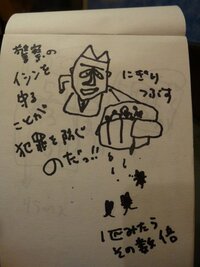 警察の
イシンを
守る
ことが
犯罪を防ぐ
のだっ!!
にぎり
つぶす
1匹みたら
その数倍